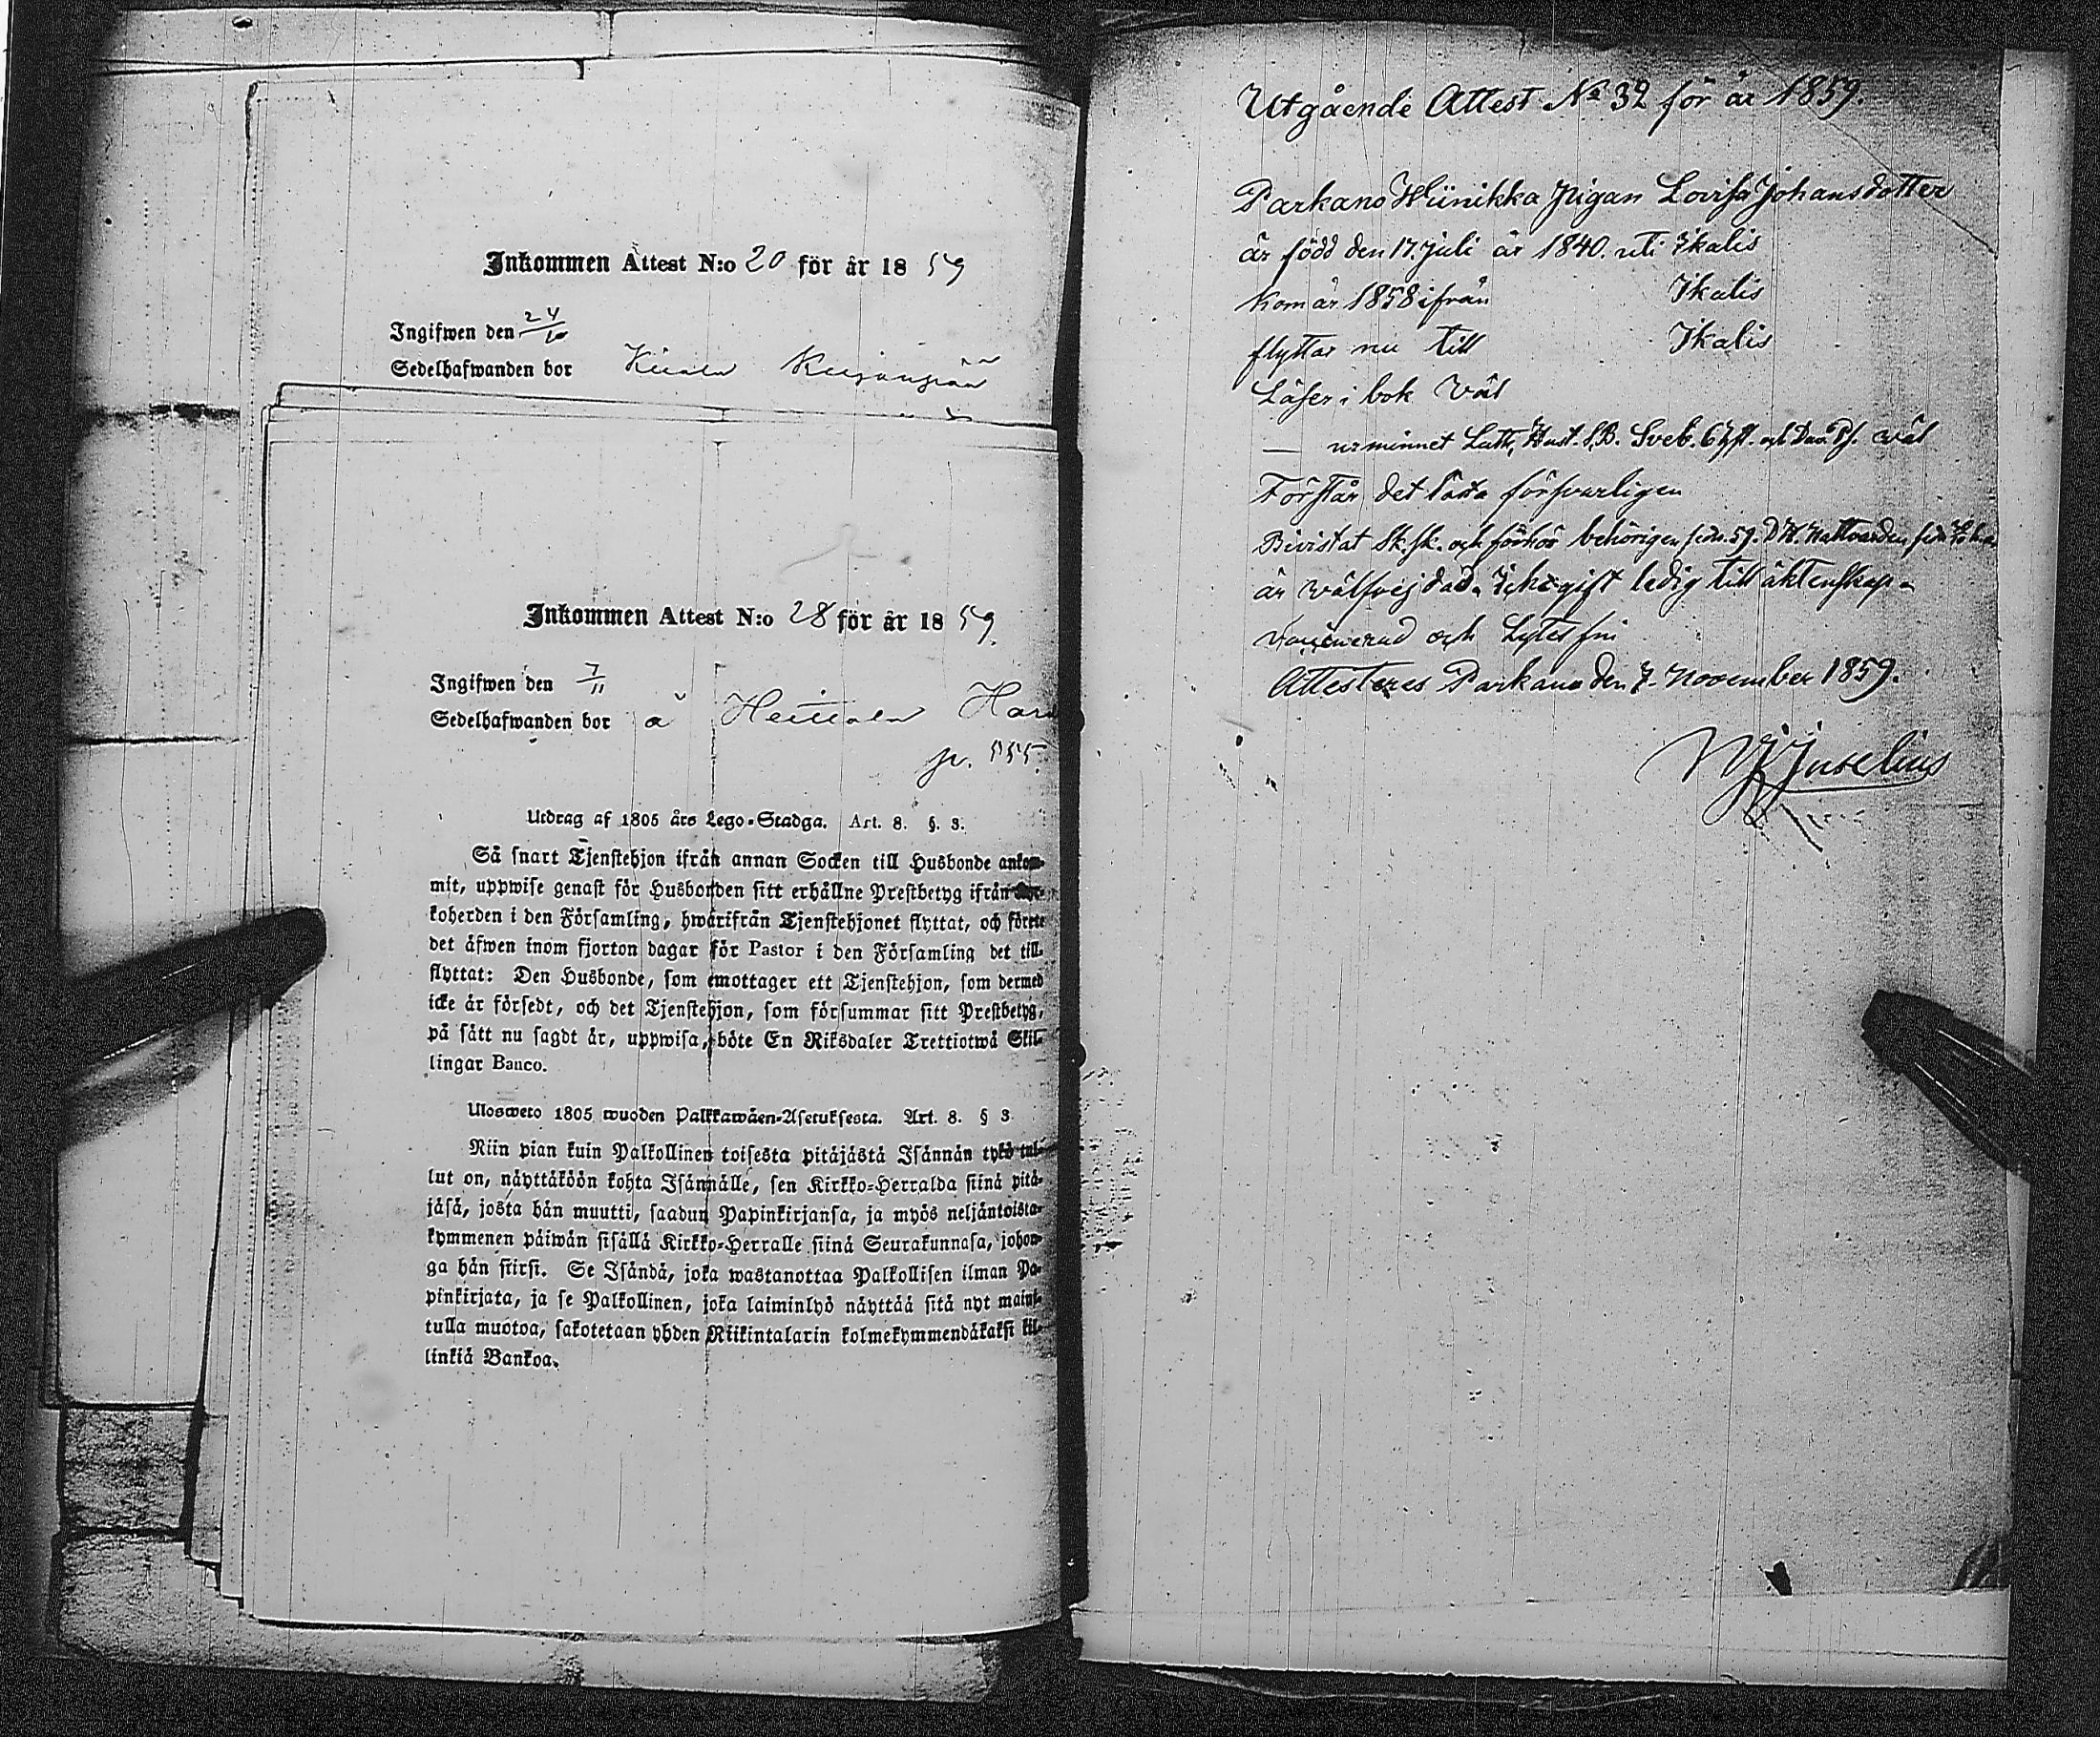 Inkommen Attest N:o 20 för år 1859
Ingifwen den 24/10
Sedelhafwanden bor
Inkommen Attest N:o 28 för år 1859.
Ingifwen den 7/11
Sedelhafwanden bor å
p. 555.
Utdrag af 1805 års Lego-Stadga. Art. 8. §. 3.
Så snart Tjenstehjon ifrån annan Socken till Husbonde ankom-
mit, uppwise genast för Husbonden sitt erhållne Prestbetyg ifrån
koherden i den Församling, hwarifrån Tjenstehjonet flyttat, och förete
det äfwen inom fjorton dagar för Pastor i den Församling det till-
flyttat: Den Husbonde, som emottager ett Tjenstehjon, som dermed
icke är försedt, och det Tjenstehjon, som försummar sitt Prestbetyg,
på sätt nu sagdt är, uppwisa, böte En Riksdaler Trettiotwå Skil-
lingar Banco.
Ulosweto 1805 wuoden Palkkawäen-Asetuksesta. Art. 8. § 3
Niin pian kuin Palkollinen toisesta pitäjästä Isännän tykö tul-
lut on, näyttäköön kohta Isännälle, sen Kirkko-Herralda siinä pitä-
jäsä, josta hän muutti, saadun Papinkirjansa, ja myös neljäntoista-
kymmenen päiwän sisällä Kirkko-Herralle siinä Seurakunnasa, johon-
ga hän siirsi. Se Isändä, joka wastanottaa Palkollisen ilman Pa-
pinkirjata, ja se Palkollinen, joka laiminlyö näyttää sitä nyt mainit-
tulla muotoa, sakotetaan yhden Riikintalarin kolmekymmendäkaksi kil-
linkiä Bankoa.
Utgående Attest No 32 för år 1859.
Parkano Hiinikka Pigan Lovisa Johansdotter
är född den 17. Juli år 1840. uti Ikalis
Kom år 1858 ifrån Ikalis
flyttar nu till Ikalis
Läser i bok väl
— ur minnet Luth. Hust. S.B. Sveb. och Dav. Ps. väl
Förstår det lästa försvarligen
Bivistat Sk.sk. och förhör behörigen sidn. 59. D.H. Nattvarden
är välfrejdad. Icke gift ledig till äktenskap
vaccinerad och Lytesfri
Attesteres Parkano den 7. November 1859.